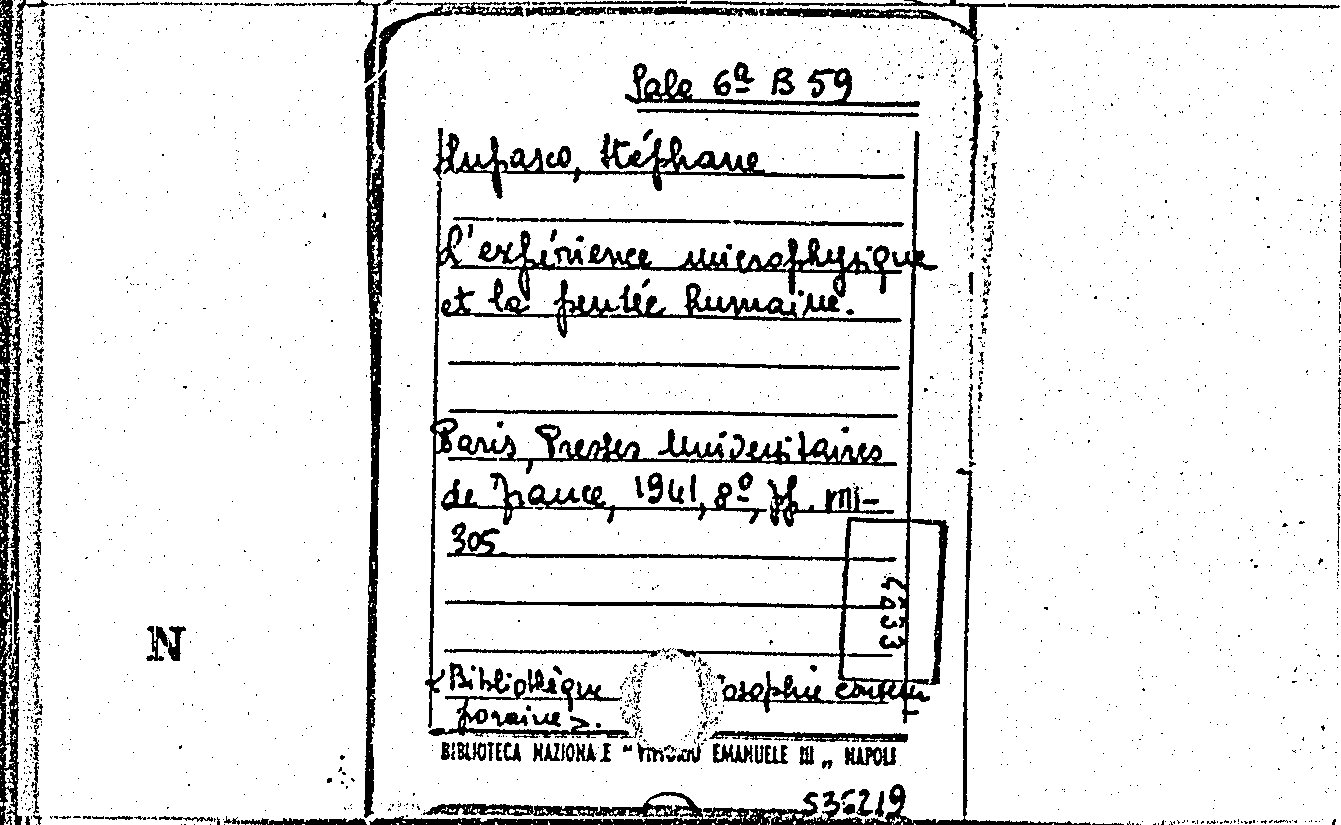 Sale 6ª B 59
Lupasco, Stéphane
L'expérience microphysique
et la pensée humaine.
Paris, Presses Universitaires
de France, 1941, 8º, pp. VIII-
305
4633
<Bibliothèque osophie contem
poraine>.
BIBLIOTECA NAZIONALE "VITTORIO EMANUELE III„ NAPOLI
536219
N